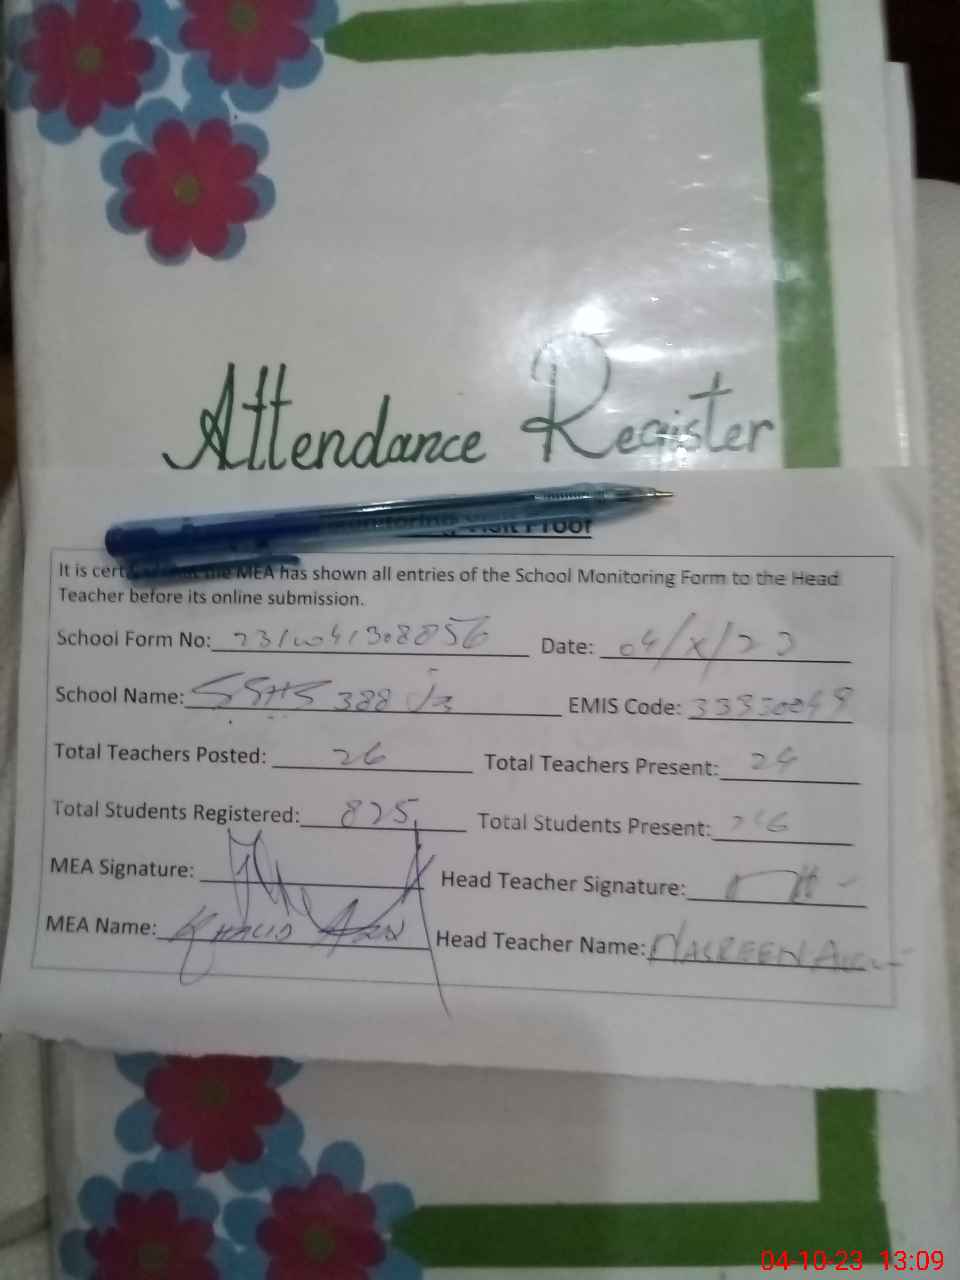 Attendance Register
Visit Proof
It is the MEA has shown all entries of the School Monitoring Form to the Head
Teacher before its online submission.
School Form No: Date: 04/X/23
School Name: 388 EMIS Code:
Total Teachers Posted: 26 Total Teachers Present: 24
Total Students Registered: 825 Total Students Present:
MEA Signature: Head Teacher Signature:
MEA Name: Khalid Head Teacher Name: NASREEN
04-10-23 13:09